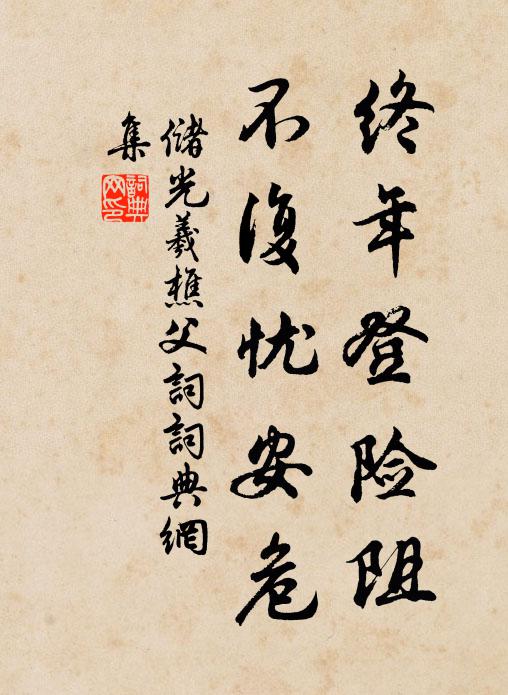 终年登险阻
不復忧安危
儲光羲樵父詞詞典網
集
詞典
网印